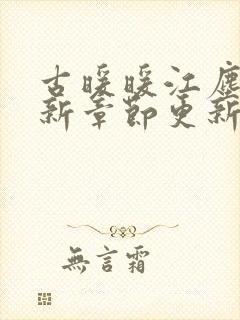 古暖暖江塵
新章節更新
無言霜